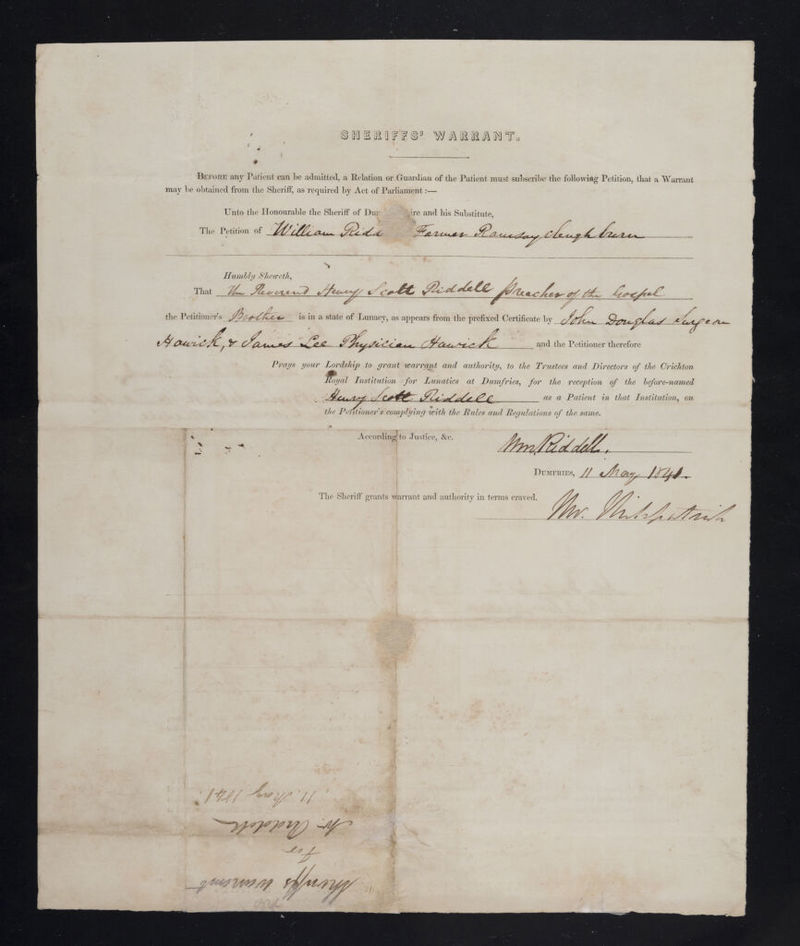 SHERIFFS' WARRANT.
BEFORE any Patient can be admitted, a Relation or Guardian of the Patient must subscribe the following Petition, that a Warrant
may be obtained from the Sheriff, as required by Act of Parliament :—
Unto the Honourable the Sheriff of Du ire and his Substitute,
The Petition of William Ridd Farmer Ramsay Cleugh burn
Humbly Sheweth,
That The Reverend Henry Scott Riddell Preacher of the Gospel
the Petitioner's Brother is in a state of Lunacy, as appears from the prefixed Certificate by John Douglas Surgeon
Hawick, & James Lee Physician Hawick and the Petitioner therefore
Prays your Lordship to grant warrant and authority, to the Trustees and Directors of the Crichton
Royal Institution for Lunatics at Dumfries, for the reception of the before-named
Henry Scott Riddell as a Patient in that Institution, on
the Petitioner's complying with the Rules and Regulations of the same.
According to Justice, &c.
Wm Riddell.
DUMFRIES, 11 May 1841.
The Sheriff grants warrant and authority in terms craved.
Kirkpatrick
Sheriffs warrant
for
Riddell
11. May 1841.